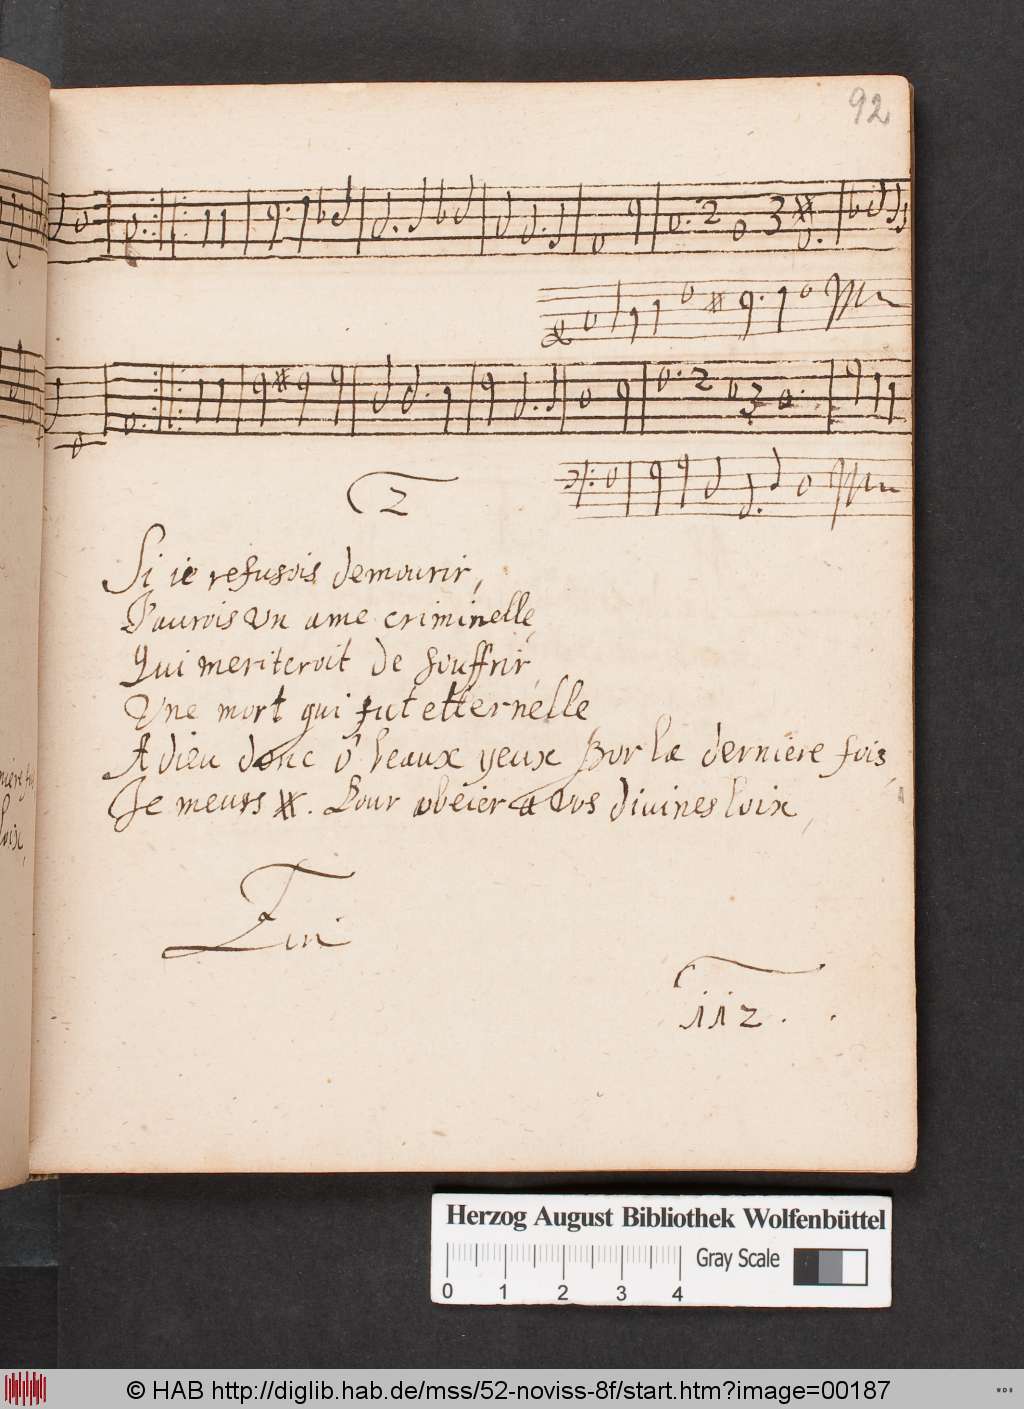 92
2
3
2
3
2
Si ie refusois demourir,
J'aurois Un ame criminelle,
Qui meriteroit de souffrir,
Une mort qui fut etternelle
A dieu donc ô beaux yeux Pour la derniere fois,
Je meurs ※. Pour obeier a Vos diuines loix,
Fin
112. .
Herzog August Bibliothek Wolfenbüttel
Gray Scale
0 1 2 3 4
© HAB http://diglib.hab.de/mss/52-noviss-8f/start.htm?image=00187